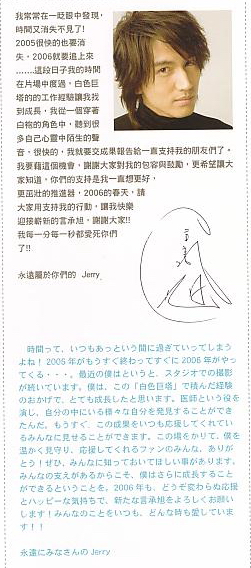 我常常在一眨眼中發現，
時間又消失不見了!
2005很快的也要消
失，2006就要追上來
.......這段日子我的時間
在片場中度過，白色巨
塔的的工作經驗讓我找
到成長，我從一個穿著
白袍的角色中，聽到很
多自己心靈中陌生的聲
音，很快的，我就要交成果報告給一直支持我的朋友們了。
我要藉這個機會，謝謝大家對我的包容與鼓勵，更希望讓大
家知道，你們的支持是我一直想更好，
更茁壯的推進器，2006的春天，請
大家用支持我的行動，讓我快樂
迎接嶄新的言承旭，謝謝大家!!
我每一分每一秒都愛死你們
了!!
永遠屬於你們的 Jerry
時間って、いつもあっという間に過ぎていってしまう
よね！2005年がもうすぐ終わってすぐに2006年がやっ
てくる・・・。最近の僕はというと、スタジオでの撮影
が続いています。僕は、この「白色巨塔」で積んだ経験
のおかげで、とても成長したと思います。医師という役を
演し、自分の中にいる様々な自分を発見することができ
たんだ。もうすぐ、この成果をいつも応援してくれてい
るみんなに見せることができます。この場をかりて、僕を
温かく見守り、応援してくれるファンのみんな、ありが
とう！ぜひ、みんなに知っておいてほしい事があります。
みんなの支えがあるからこそ、僕はさらに成長すること
ができるということを。2006年も、どうぞ変わらぬ応援
とハッピーな気持ちで、新たな言承旭をよろしくお願い
します！みんなのことをいつも、どんな時も愛していま
す！！
永遠にみなさんの Jerry